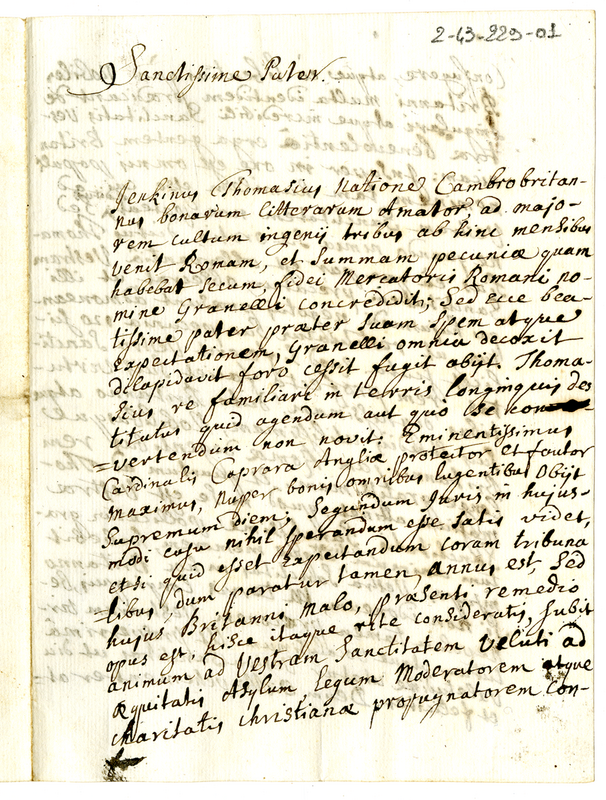 2-43-229-01
Sanctissime Pater.
Jenkinus Thomasius Natione Cambrobritan-
nus bonarum litterarum Amator, ad majo-
rem cultum ingenij tribus ab hinc mensibus
venit Romam, et Summam pecuniæ quam
habebat secum, fidei Mercatoris Romani no-
mine Granelli concredidit; Sed ecce bea-
tissime pater præter suam Spem atque
Expectationem, Granelli omnia decoxit
dilapidavit foro cessit fugit abijt. Thoma-
sius re familiari in terris longinquis des
titutus quid agendum aut quo se con
=vertendum non novit. Eminentissimus
Cardinalis Caprara Angliæ protector et fautor
maximus, nuper bonis omnibus lugentibus Obijt
Supremum diem; Segundum Juris in hujus-
modi casu nihil sperandum esse satis videt,
etsi quid esset Expectandum coram tribuna
=libus, dum paratur tamen, annus est, Sed
hujus Britanni malo, præsenti remedio
opus est, hisce itaque rite consideratis, subit
animum ad Vestram Sanctitatem veluti ad
æquitatis Asylum, legum Moderatorem atque
charitatis christianæ propugnatorem con-